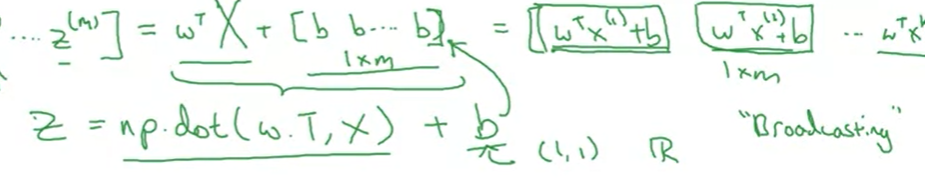 ... z^(m)] = w^T X + [b b ... b] = [w^T x^(1)+b w^T x^(2)+b ... w^T x
1×m 1×m
Z = np.dot(w.T, X) + b (1,1) ℝ "Broadcasting"